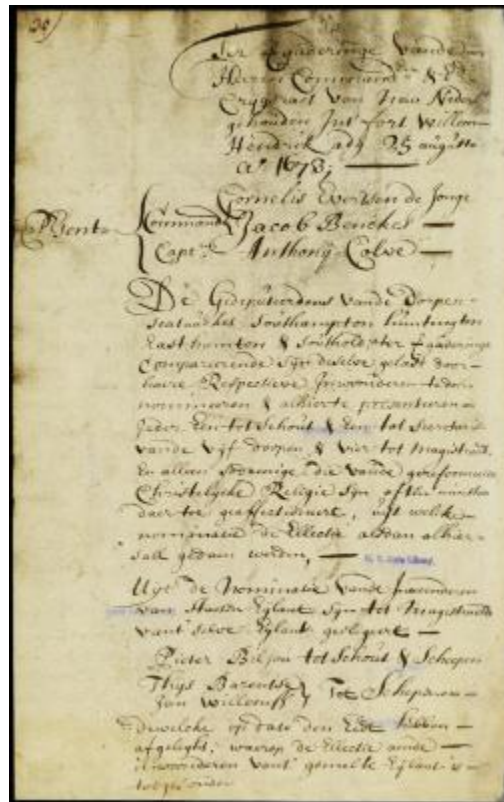 Ter Vergaderinge vande
Heeren Command.rs &
Crygsraet van N:w Neder
gehouden Int fort Willem
Hendrick ady 25 augusti
A° 1673;
Present
Cornelis Evertsen de Jonge
Command.rs Jacob Benckes
Capt.n Anthony Colve
De Gedeputeerdens vande Dorpen
Seatauches Southampton huntington
Easthamton & Southold ter Vergaderinge
Comparerende syn deselve gelast door
haere Respective Inwoonderen te doen
nomineeren & alhier te presenteren
Jeder Een tot Schout & Een tot Secretaris
vande vyf dorpen & vier tot Magistraet
En alleen sodanige die vande gereformeerde
Christelycke Religie syn ofte
daer toe geaffectioneert, uyt welke
nominatie de Electie alsdan alhier
sall gedaen werden,
Uyt de Nominatie vande Inwoonderen
van Staaten Eylant syn tot Magistraeten
vant selve Eylant geeligeert
Pieter Biljou tot Schout & Schepen
Thys Barentse
Jan Willemss Tot Schepenen
dewelcke op dato den Eedt hebben
afgeleght, waerop de Electie aende
Inwoonderen vant gemelte Eylant is